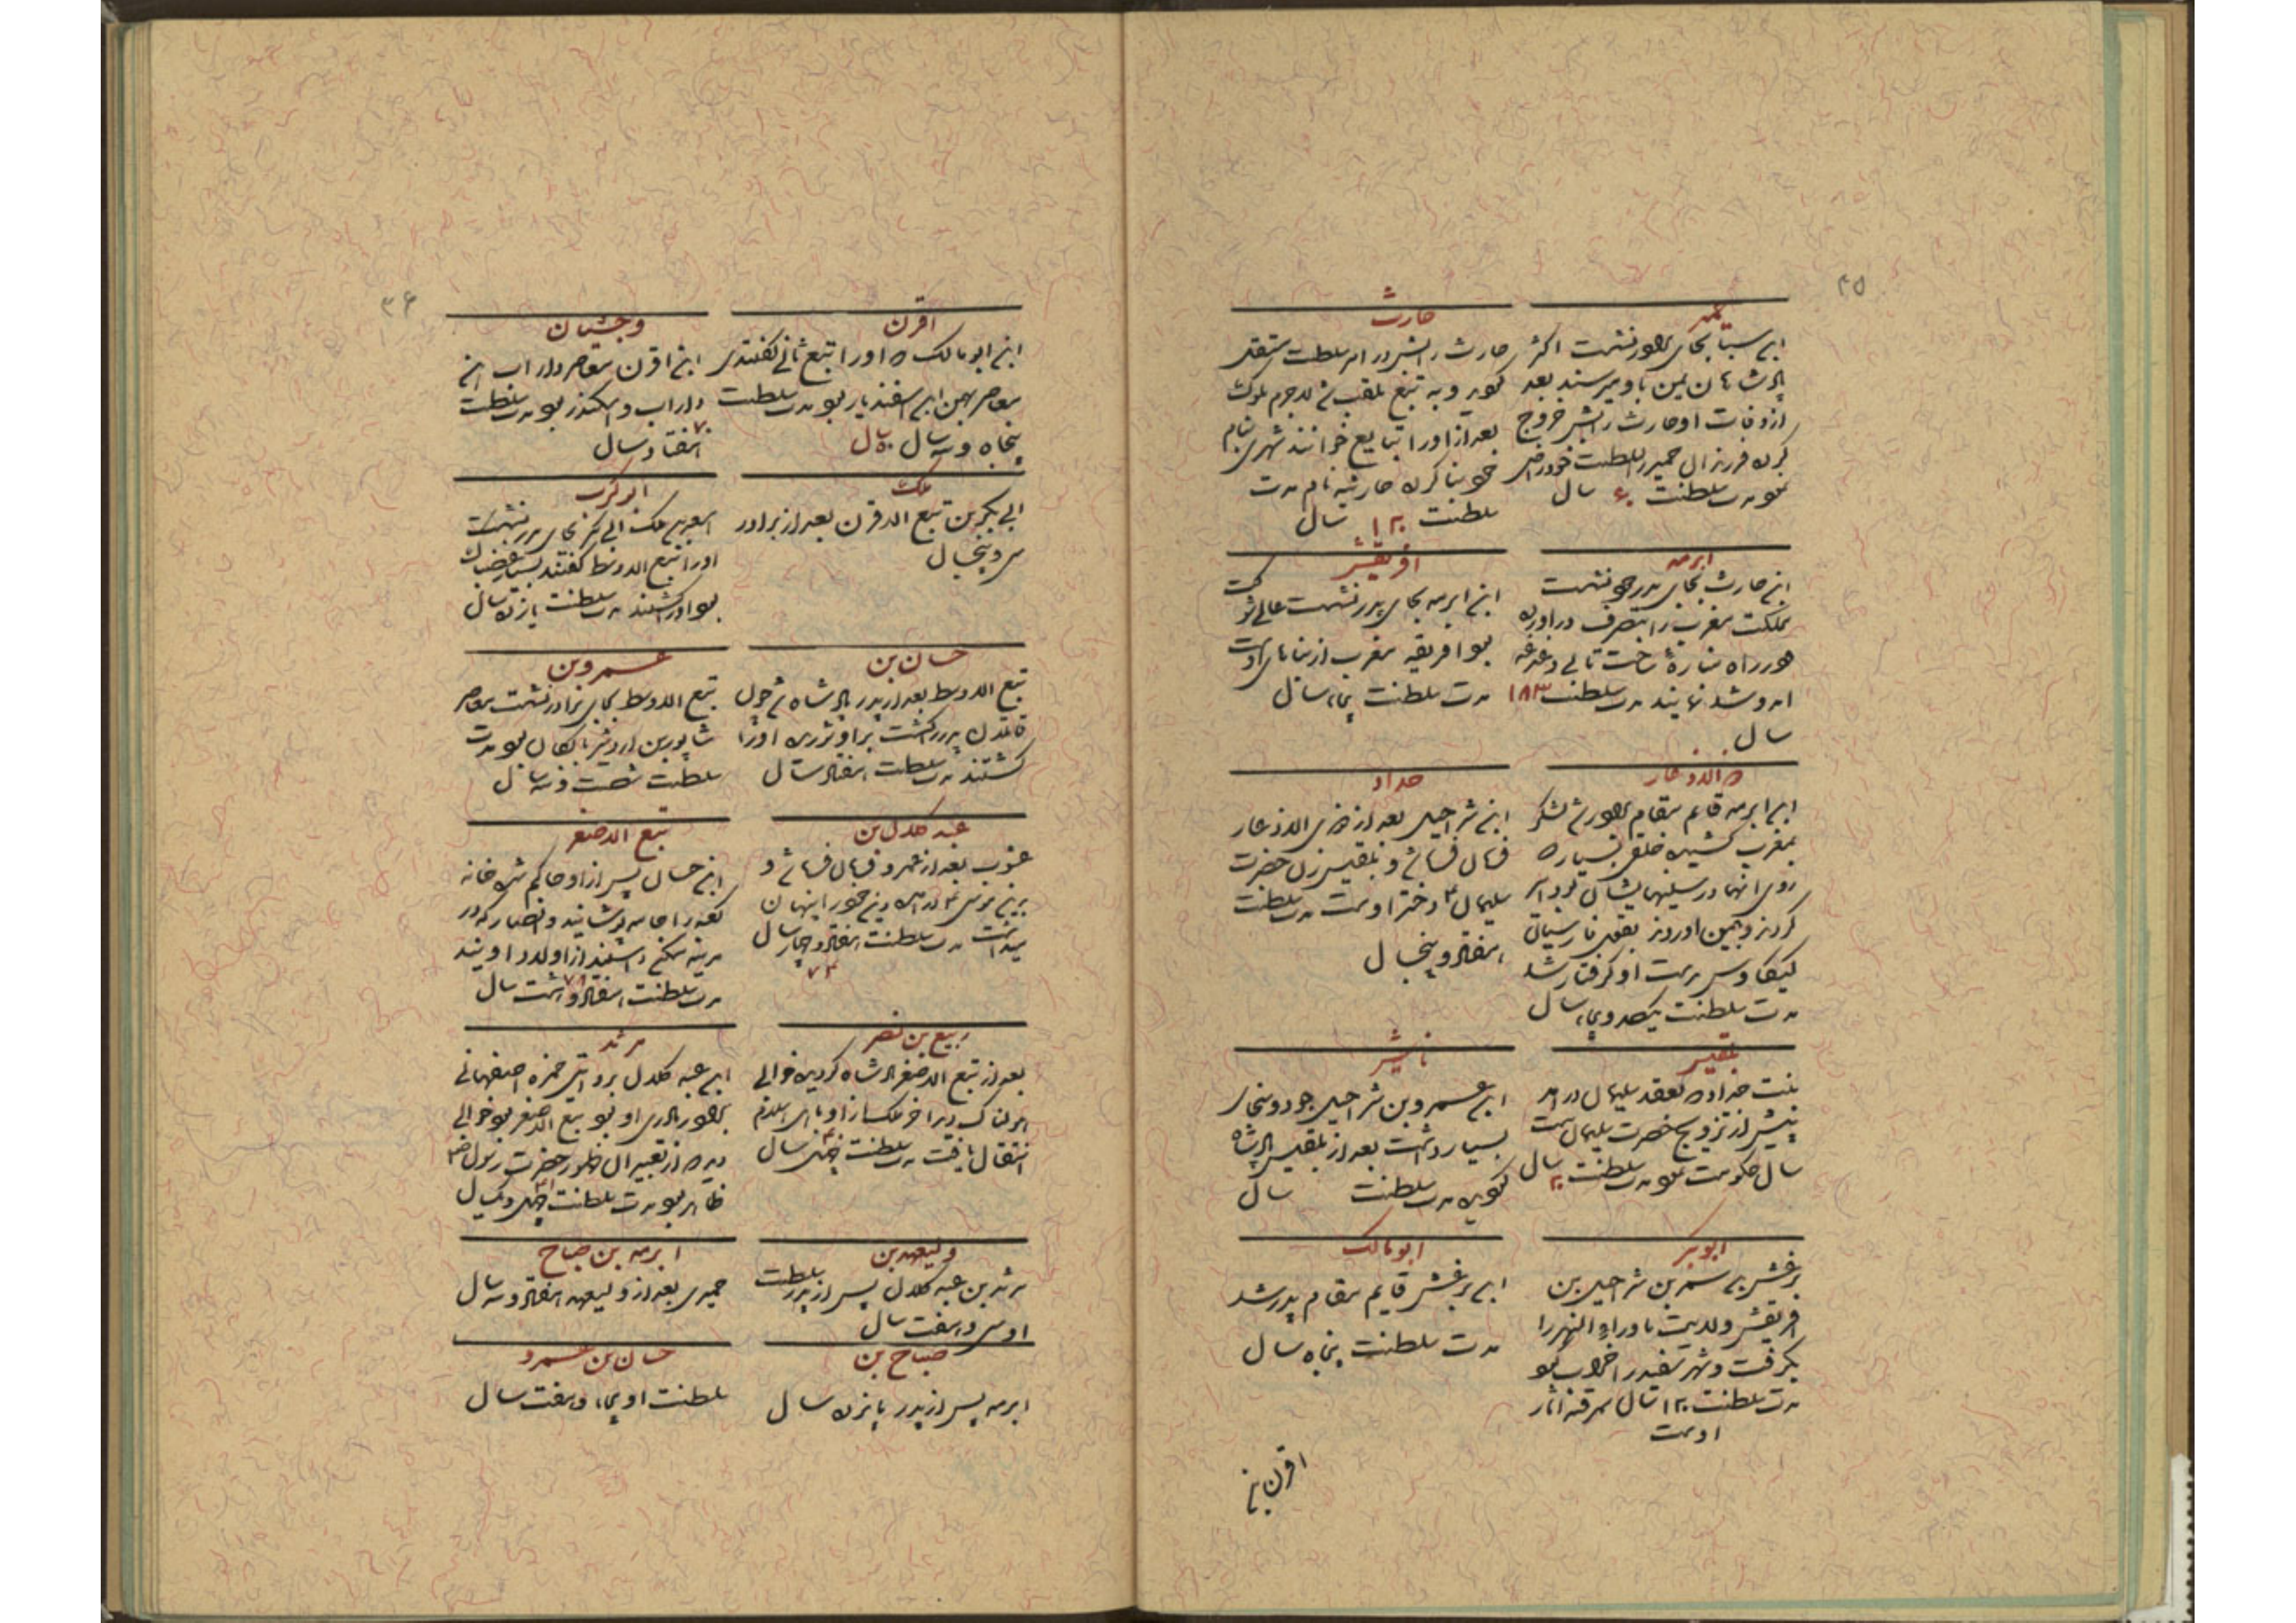 ۳۵
حمیر
ابن سبا بجای پدر نشست اکثر
پادشاهان یمن باو میرسند بعد
از وفات او حارث رایش خروج
کرده فرزندان حمیر را سلطنت خود راضی
نمود مدت سلطنت ۶۰ سال
حارث
حارث رایش در امر سلطنت مستقل
گردید و به تبع ملقب شد لاجرم ملوک
بعد از او را تبابع خوانند شهری بنام
خود بنا کرده حارثیه نام مدت
سلطنت ۱۲۰ سال
ابرهه
ابن حارث بجای پدر خود نشست
مملکت مغرب را بتصرف در آورده
در راه مناره ساخت تا بی دغدغه
امد و شد نمایند مدت سلطنت ۱۸۳
سال
افریقیش
ابن ابرهه بجای پدر نشست عالی همت
بود افریقیه مغرب از بناهای اوست
مدت سلطنت پنجاه سال
ذو الاذعار
ابن ابرهه قائم مقام پدر شد لشکر
بمغرب کشیده خلقی بسیار که
روی انها در سینهایشان بود اسیر
کردند و بیمن اوردند بقول فارسیان
کیکاوس بدست او گرفتار شد
مدت سلطنت یکصد و پنجاه سال
هداد
ابن شراحیل بعد از ذی الاذعار
و بلقیس زن حضرت
سلیمان ۴ دختر اوست مدت سلطنت
هفتاد و پنج سال
بلقیس
بنت هداد که بعقد سلیمان در امد
پیش از تزویج حضرت سلیمان بیست
سال حکومت نمود مدت سلطنت ۲۰ سال
ناشر
ابن عمرو بن شراحیل جود و سخای
بسیار داشت بعد از بلقیس پادشاه
گردید مدت سلطنت سال
ابو بکر
برغش بن سمر بن شراحیل بن
افریقش ولایت ماوراء النهر را
بگرفت و شهر سغد را خراب نمود
مدت سلطنت ۱۲۰ سال سمرقند اثار
اوست
ابو مالک
ابن برغش قایم مقام پدر شد
مدت سلطنت پنجاه سال
اقرن بن
۳۶
اقرن
ابن ابو مالک که او را تبع ثانی گفتندی
معاصر بهمن ابن اسفندیار بود مدت سلطنت
پنجاه و سه سال
و جشیان
ابن اقرن معاصر داراب ابن
داراب و اسکندر بود مدت سلطنت
۷۰
هفتاد سال
ملک
ابی بکر بن تبع الاقرن بعد از برادر
سی و پنج سال
ابو کرب
اسعد بن ملک ابی بکر بجای پدر نشست
او را تبع الاوسط گفتند بسیار غضبناک
بود او را کشتند مدت سلطنت یازده سال
حسان بن
تبع الاوسط بعد از پدر پادشاه شد چون
قاتلان پدر را کشت برادرش او را
کشتند مدت سلطنت هفتاد سال
عمرو بن
تبع الاوسط بجای برادر نشست معاصر
شاپور بن اردشیر بابکان بود مدت
سلطنت شصت و سه سال
عبد کلال بن
مثوب بعد از عمرو و
بدین موسی ۴ در امده دین خود را پنهان
میداشت مدت سلطنت هفتاد و چهار سال
۷۴
تبع الاصغر
ابن حسان پس از او حاکم شد خانه
کعبه را جامه پوشانید و انصار که در
مدینه سکنی داشتند از اولاد اویند
مدت سلطنت هفتاد و هشت سال
۷۸
ربیع بن نصر
بعد از تبع الاصغر پادشاه گردید خوابی
هولناک دید اخر ملک از او باهل اسلام
انتقال یافت مدت سلطنت چهل سال
مرثد
ابن عبد کلال بروایتی حمزه اصفهانی
برادر مادری او بود تبع الاصغر بود خوابی
دید که از تعبیر ان ظهور حضرت رسول ص
ظاهر بود مدت سلطنت چهل و یک سال
ولیعه بن
مرثد بن عبد کلال پس از پدر سلطنت
او سی و هفت سال
ابرهه بن صباح
حمیری بعد از ولیعه هفتاد و سه سال
صباح بن
ابرهه پس از پدر پانزده سال
حسان بن عمرو
سلطنت او پنجاه و هفت سال